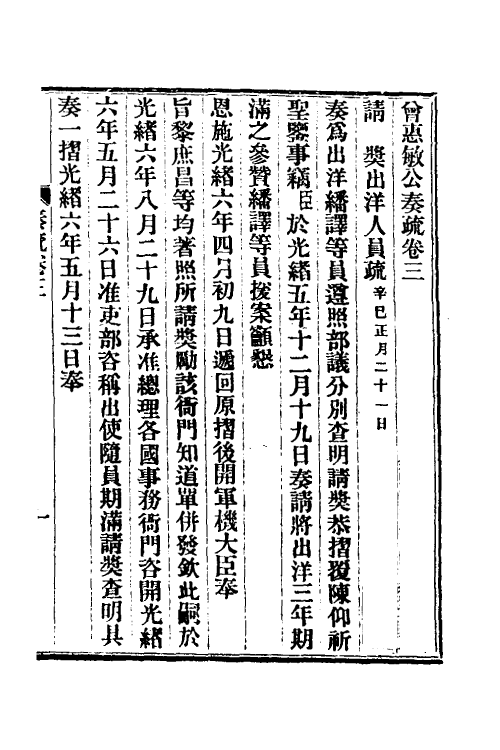 曾惠敏公奏疏卷三
請 獎出洋人員疏 辛巳正月二十一日
奏爲出洋繙譯等員遵照部議分別查明請獎恭摺覆陳仰祈
聖鑒事竊臣於光緒五年十二月十九日奏請將出洋三年期
滿之參贊繙譯等員援案籲懇
恩施光緒六年四月初九日遞回原摺後開軍機大臣奉
旨黎庶昌等均著照所請獎勵該衙門知道單併發欽此嗣於
光緒六年八月二十九日承准總理各國事務衙門咨開光緒
六年五月二十六日准吏部咨稱出使隨員期滿請獎查明具
奏一摺光緒六年五月十三日奉
奏疏卷三
一